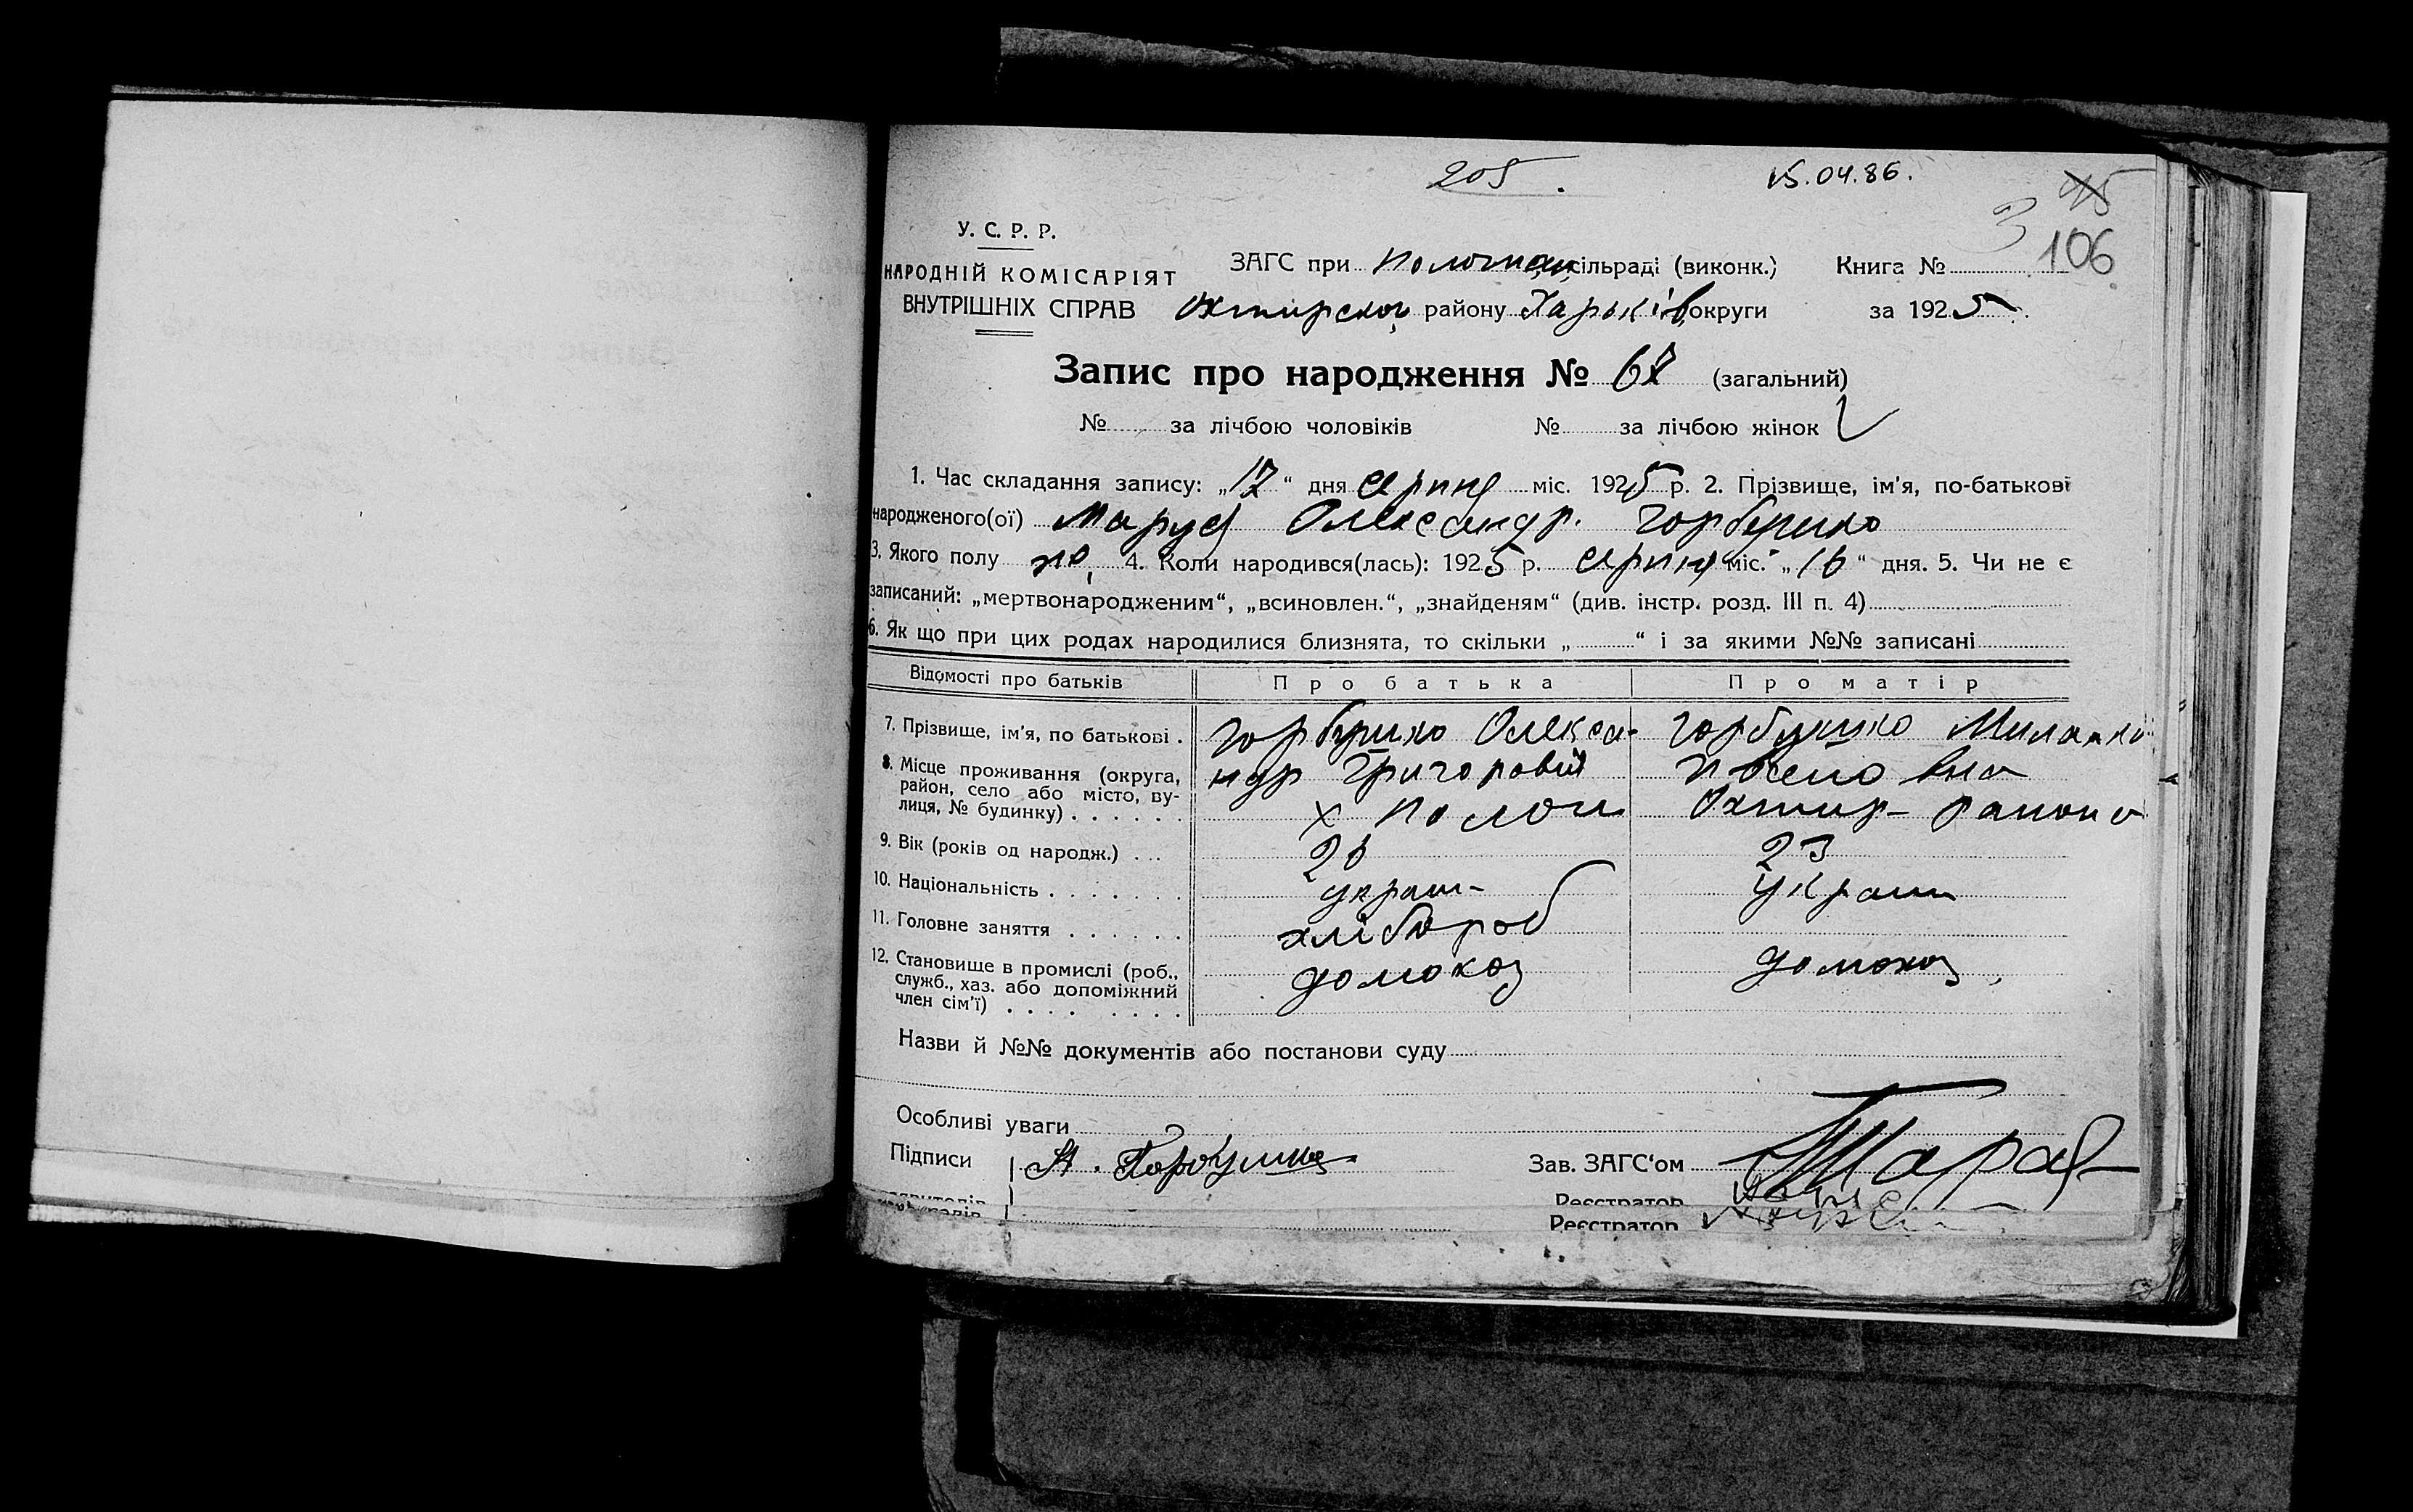 205.
15.04.86.
45
3
106
У. С. Р. Р.
НАРОДНІЙ КОМІСАРІЯТ
ВНУТРІШНІХ СПРАВ
ЗАГС при сільраді (виконк.) Книга №
Охтирског району Харьків округи за 1925.
Запис про народження № 67 (загальний)
№ за лічбою чоловіків № за лічбою жінок
1. Час складання запису: „17“ дня серпня міс. 1925 р. 2. Прізвище, ім'я, по-батькові
народженого(ої) Маруся Олександр. Горбунко
3. Якого полу жо, 4. Коли народився(лась): 1925 р. серпня міс. „16“ дня. 5. Чи не є
записаний: „мертвонародженим“, „всиновлен.“, „знайденям“ (див. інстр. розд. III п. 4)
6. Як що при цих родах народилися близнята, то скільки „ “ і за якими №№ записані
Відомості про батьків Про батька Про матір
7. Прізвище, ім'я, по батькові . Олекса-
8. Місце проживання (округа, ндр Григоровий
район, село або місто, ву-
лиця, № будинку) . . . . . . х Охтир- району
9. Вік (років од народж.) . . . 26 23
10. Національність . . . . . . . украин- Украин
11. Головне заняття . . . . . . хлібороб
12. Становище в промислі (роб., домохоз домохоз
служб., хаз. або допоміжний
член сім'ї) . . . . . . . .
Назви й №№ документів або постанови суду
Особливі уваги
Підписи Зав. ЗАГС'ом
Реєстратор
Реєстратор